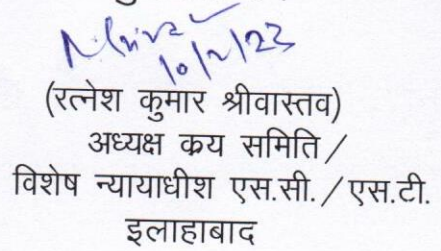 10/2/23
(रत्नेश कुमार श्रीवास्तव)
अध्यक्ष क्रय समिति/
विशेष न्यायाधीश एस.सी./एस.टी.
इलाहाबाद